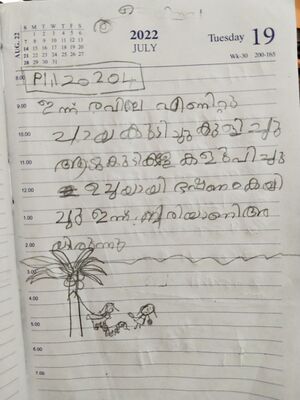 AUG. 22
S M T W T F S
1 2 3 4 5 6
7 8 9 10 11 12 13
14 15 16 17 18 19 20
21 22 23 24 25 26 27
28 29 30 31
2022
JULY
Tuesday 19
Wk-30 200-165
8.00
9.00 ഇന്ന് രവിലേ എണിറ്റു
10.00 ചായകുടിച്ചു കുളിച്ചു
11.00
12.00 ഉച്ചയായി ഭഷണംകയി
1.00 ചു ഇന്ന് ബിരിയാണിആ
2.00 യിരുന്നു
3.00
4.00
5.00
6.00
7.00